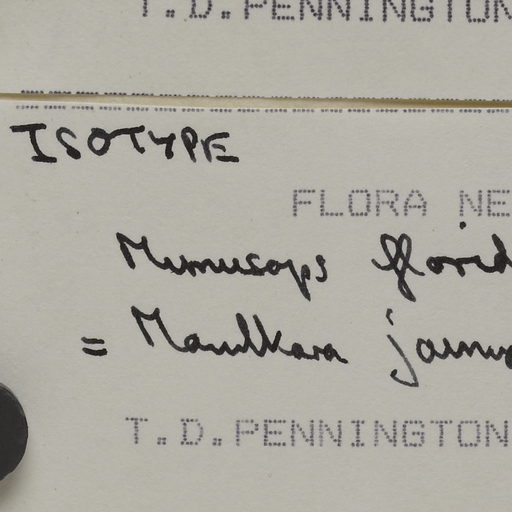 T.D.PENNINGTON
ISOTYPE
FLORA NE
Mimusops florid
= Manilkara jaimi
T.D.PENNINGTON